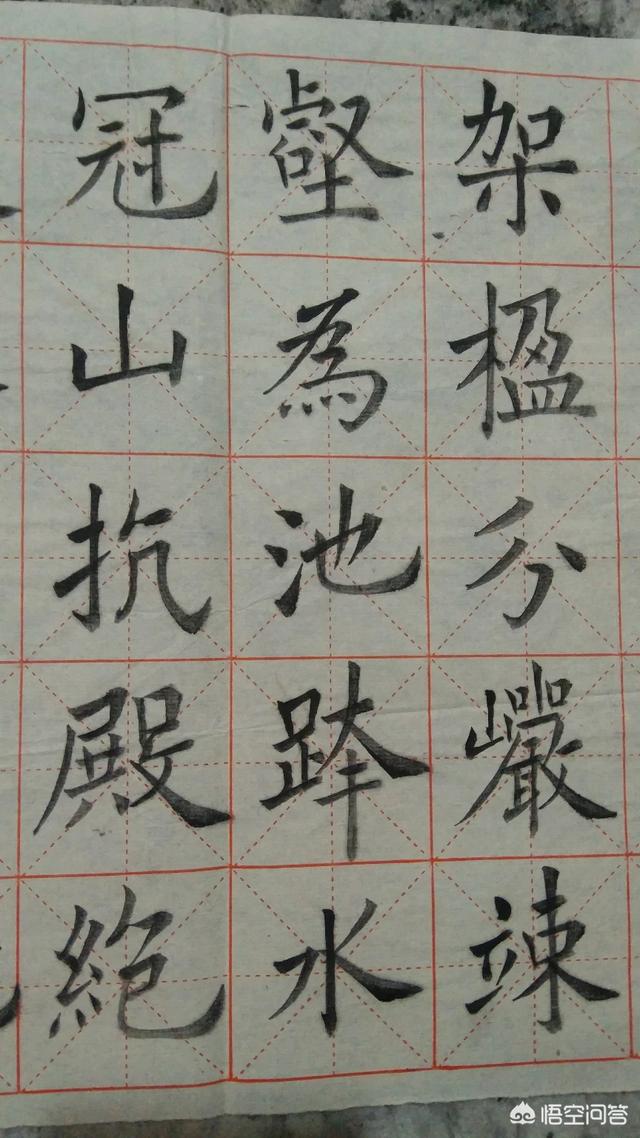 冠山抗殿絶
壑為池跨水
架楹分巖竦
悟空问答